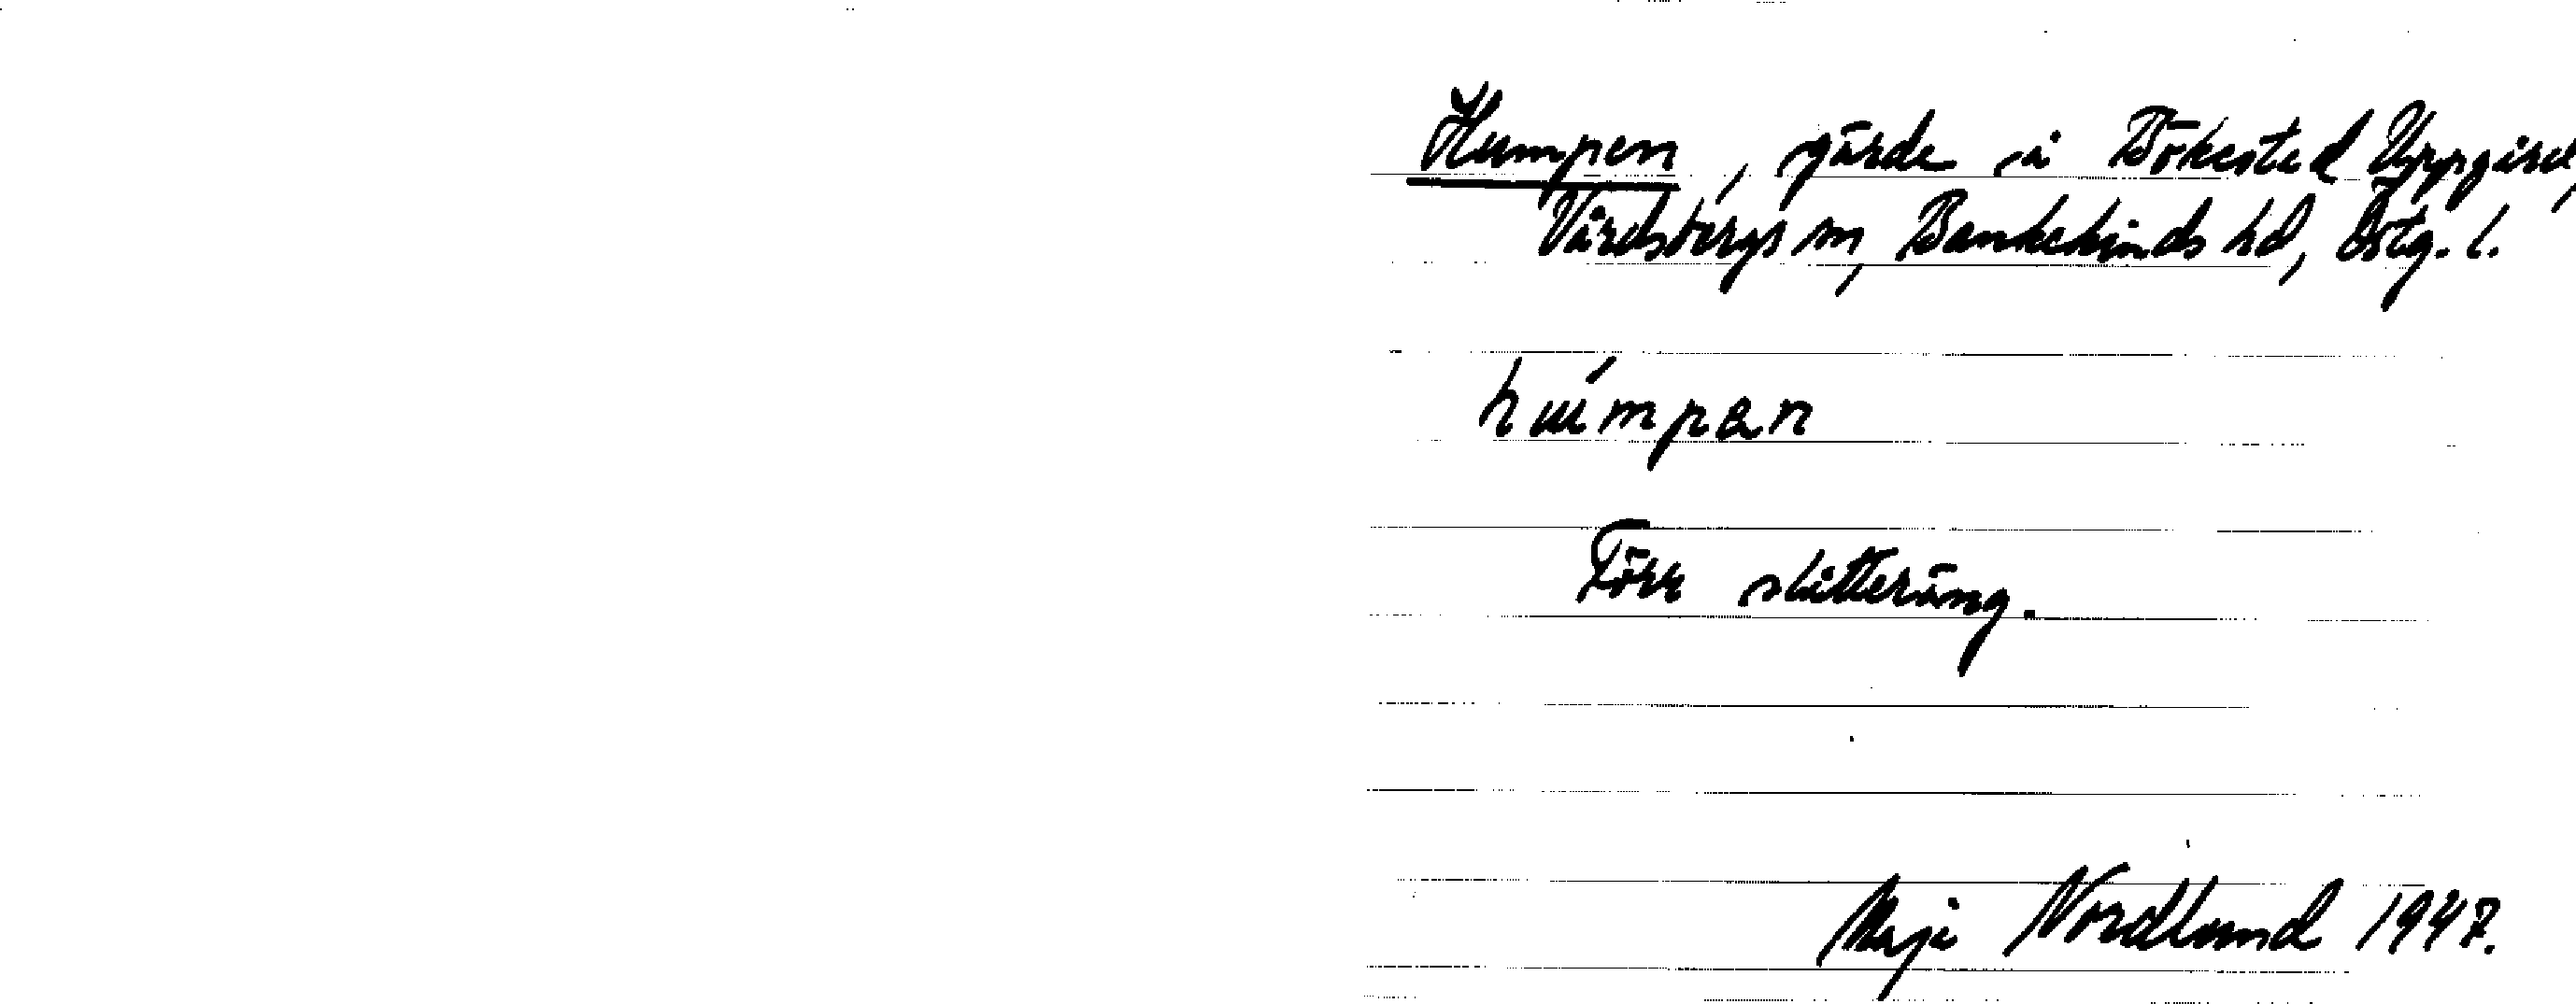 Humpen, gärde å Bökestad Uppgård,
Vårdsbergs sn, Bankekinds hd, Östg. l.
húmpan
Förr slåtteräng.
Maja Nordlund 1947.